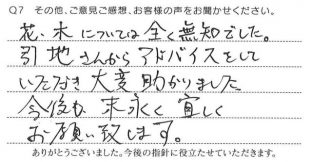 Q7 その他、ご意見ご感想、お客様の声をお聞かせください。
花、木については全く無知でした。
引地さんからアドバイスをして
いただき大変助かりました
今後も末永く宜しく
お願い致します。
ありがとうございました。今後の指針に役立たせていただきます。